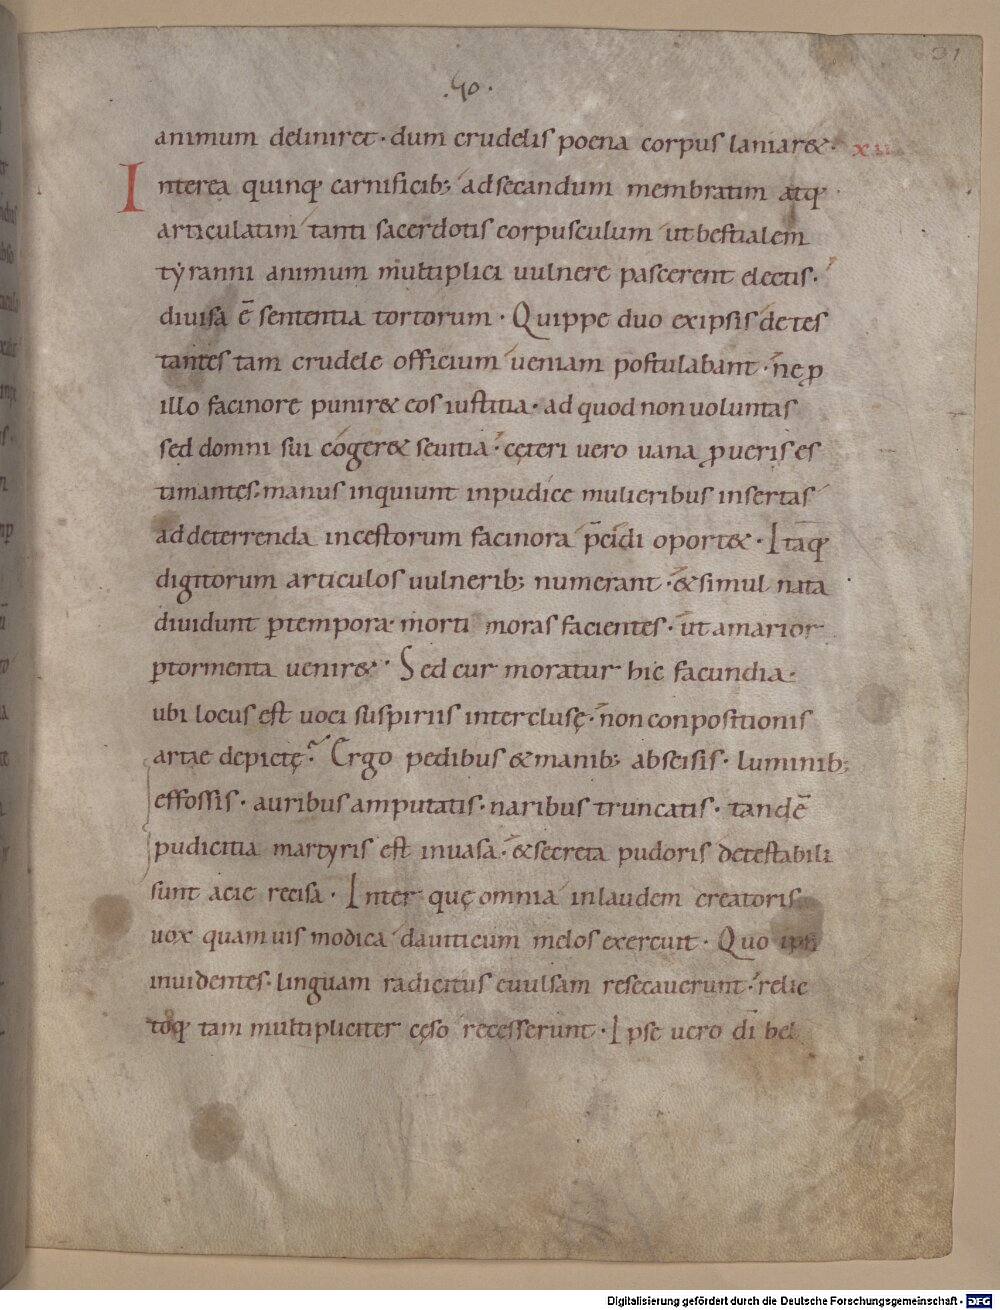 .40.
animum deliniret · dum crudelis poena corpus laniar&· 
Interea quinq; carnificib; ad secandum membratim atq;
articulatim tanti sacerdotis corpusculum ut bestialem
tẏranni animum multiplici uulnere pascerent electis ·
diuisa ē sententia tortorum · Quippe duo ex ipsis detes
tantes tam crudele officium ueniam postulabant · ne ꝓ
illo facinore punir& eos iustitia · ad quod non uoluntas
sed domni sui coger& seuitia · cęteri uero uana ꝓ ueris es
timantes · manus inquiunt inpudice mulieribus insertas
ad deterrenda incestorum facinora p̄cidi oport& · Itaq;
digitorum articulos uulnerib; numerant · & simul nata
diuidunt ꝑ tempora morti moras facientes · ut amarior
ꝑ tormenta uenir& · Sed cur moratur hic facundia ·
ubi locus est uoci suspiriis interclusę · non conpositionis
artae depictę · Ergo pedibus & manib; abscisis · luminib;
effossis · auribus amputatis · naribus truncatis · tandē
pudicitia martyris est inuasa · & secreta pudoris detestabili
sunt acie recisa · Inter quę omnia in laudem creatoris
uox quamuis modica dauiticum melos exercuit · Quo ipsi
inuidentes · linguam radicitus euulsam resecauerunt · relic
toq; tam multipliciter cęso recesserunt · Ipse uero dī bel
Digitalisierung gefördert durch die Deutsche Forschungsgemeinschaft - DFG